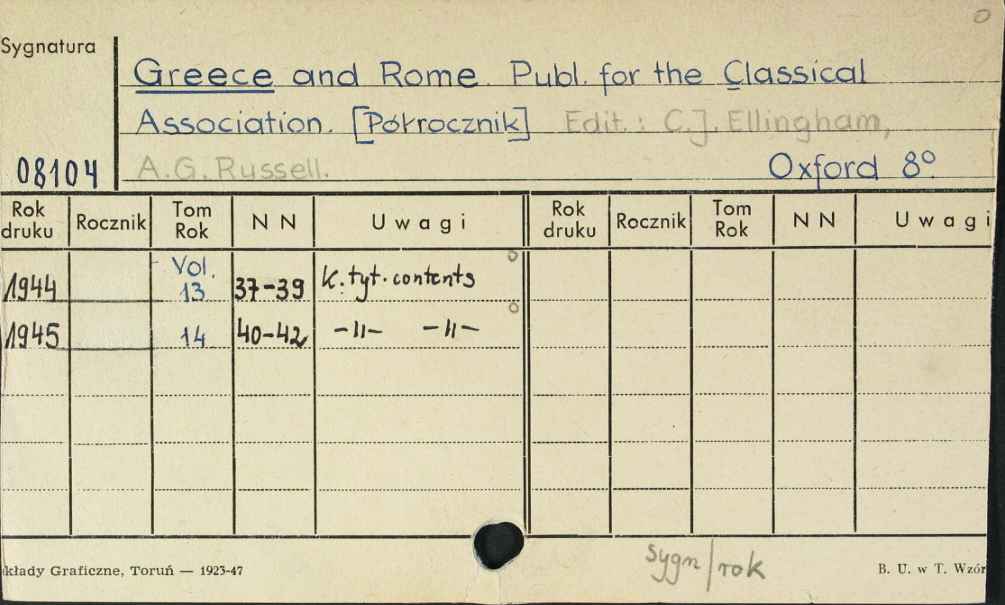 Sygnatura
Greece and Rome. Publ. for the Classical
Association. [Półrocznik] Edit.: C.J. Ellingham,
08104 A.G. Russell. Oxford 8°.
Rok druku Rocznik Tom Rok N N Uwagi Rok druku Rocznik Tom Rok N N Uwagi
1944 Vol. 13 37-39 K. tyt. contents
1945 14 40-42 -||- -||-
sygn/rok
kłady Graficzne, Toruń — 1923-47 B. U. w T. Wzór